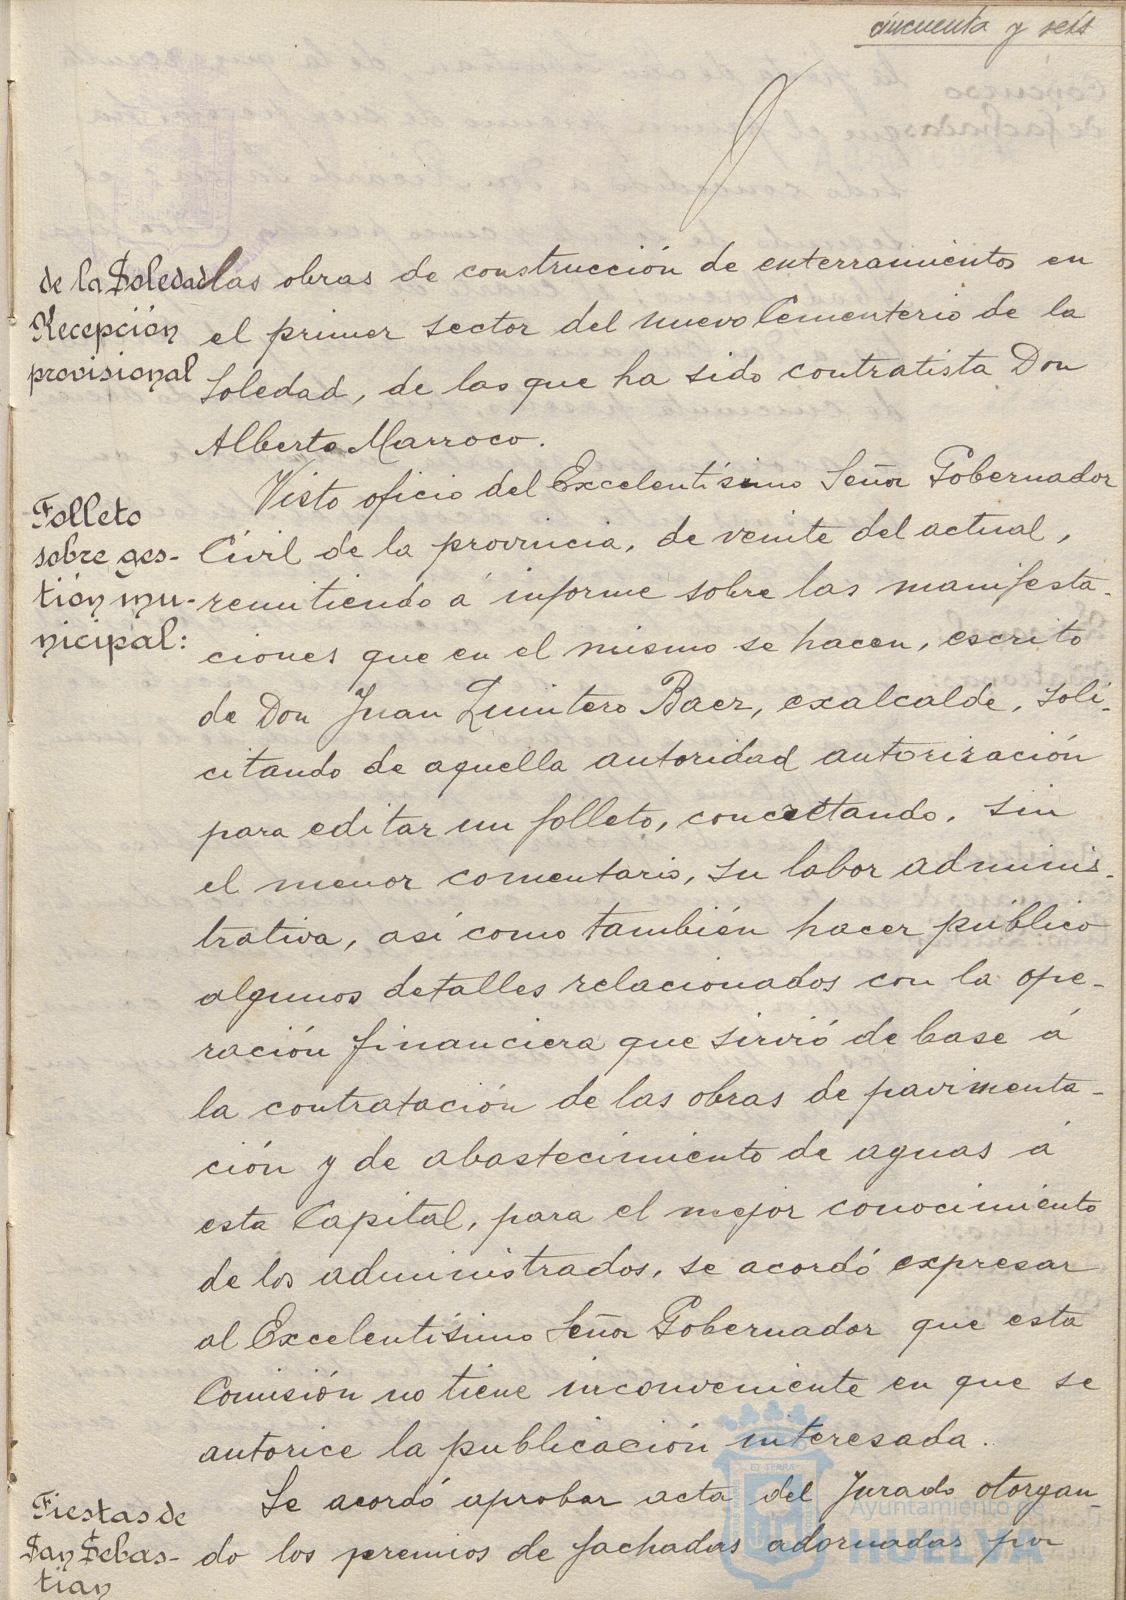 cincuenta y seis
de la Soledad
Recepción
provisional
las obras de construcción de enterramientos en
el primer sector del nuevo Cementerio de la
Soledad, de las que ha sido contratista Don
Alberto Marroco.
Folleto
sobre ges-
tión mu-
nicipal:
Visto oficio del Excelentísimo Señor Gobernador
Civil de la provincia, de veinte del actual,
remitiendo á informe sobre las manifesta-
ciones que en el mismo se hacen, escrito
de Don Juan Quintero Baez, exalcalde, soli-
citando de aquella autoridad autorización
para editar un folleto, concretando, sin
el menor comentario, su labor adminis-
trativa, así como también hacer público
algunos detalles relacionados con la ope-
ración financiera que sirvió de base á
la contratación de las obras de pavimenta-
ción y de abastecimiento de aguas á
esta Capital, para el mejor conocimiento
de los administrados, se acordó expresar
al Excelentísimo Señor Gobernador que esta
Comisión no tiene inconveniente en que se
autorice la publicación interesada.
Fiestas de
San Sebas-
tian
Se acordó aprobar acta del Jurado otorgan-
do los premios de fachadas adornadas por
Ayuntamiento de
HUELVA